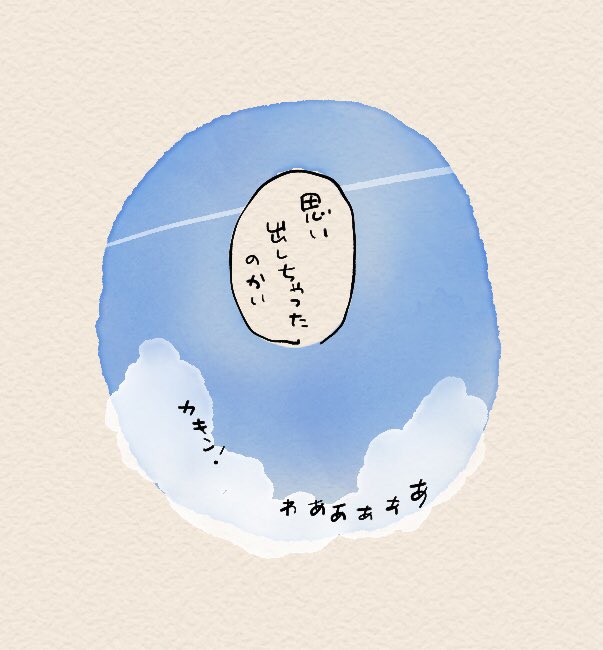 思い
出しちゃった
のかい
カキン!
わああああああ